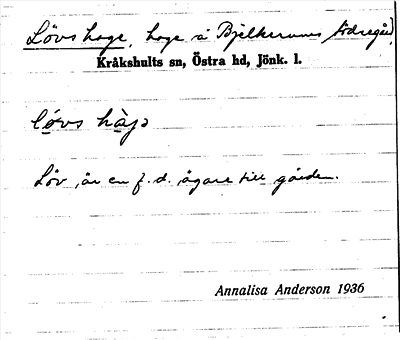 Lövs hage, hage å Bjelkerums Södregård,
Kråkshults sn, Östra hd, Jönk. l.
lövs hàjɔ
Löv är en f. d. ägare till gården.
Annalisa Anderson 1936